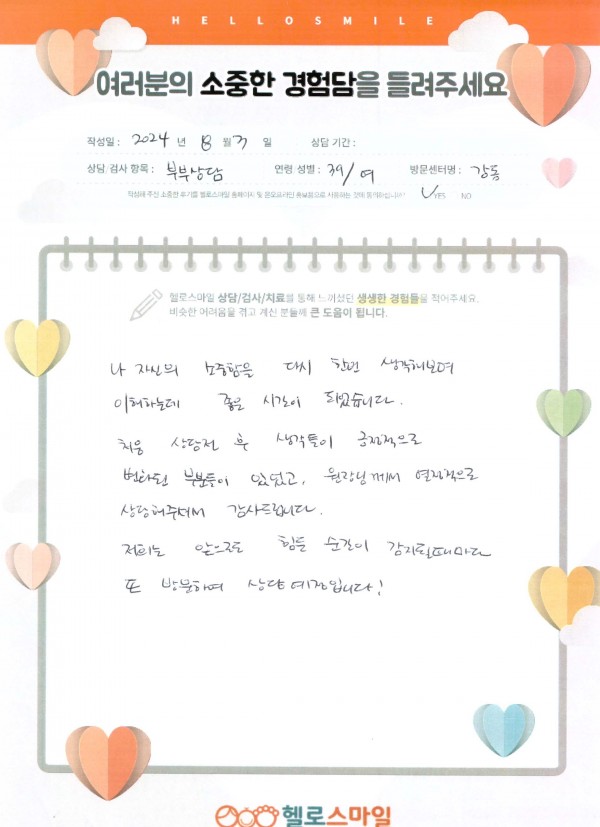 HELLOSMILE
여러분의 소중한 경험담을 들려주세요
작성일 : 2024 년 8 월 3 일 상담 기간 :
상담/검사 항목 : 부부상담 연령 성별 : 39/여 방문센터명 : 강동
작성해 주신 소중한 후기를 헬로스마일 홈페이지 및 온오프라인 홍보용으로 사용하는 것에 동의하십니까? YES NO
헬로스마일 상담/검사/치료를 통해 느끼셨던 생생한 경험들을 적어주세요.
비슷한 어려움을 겪고 계신 분들께 큰 도움이 됩니다.
나 자신의 소중함을 다시 한번 생각해보며
이해하는데 좋은 시간이 되었습니다.
처음 상담전 후 생각들이 긍정적으로
변화된 부분들이 있었고, 원장님께서 열정적으로
상담해주셔서 감사드립니다.
저희는 앞으로도 힘든 순간이 감지될때마다
또 방문하여 상담예정입니다!
헬로스마일